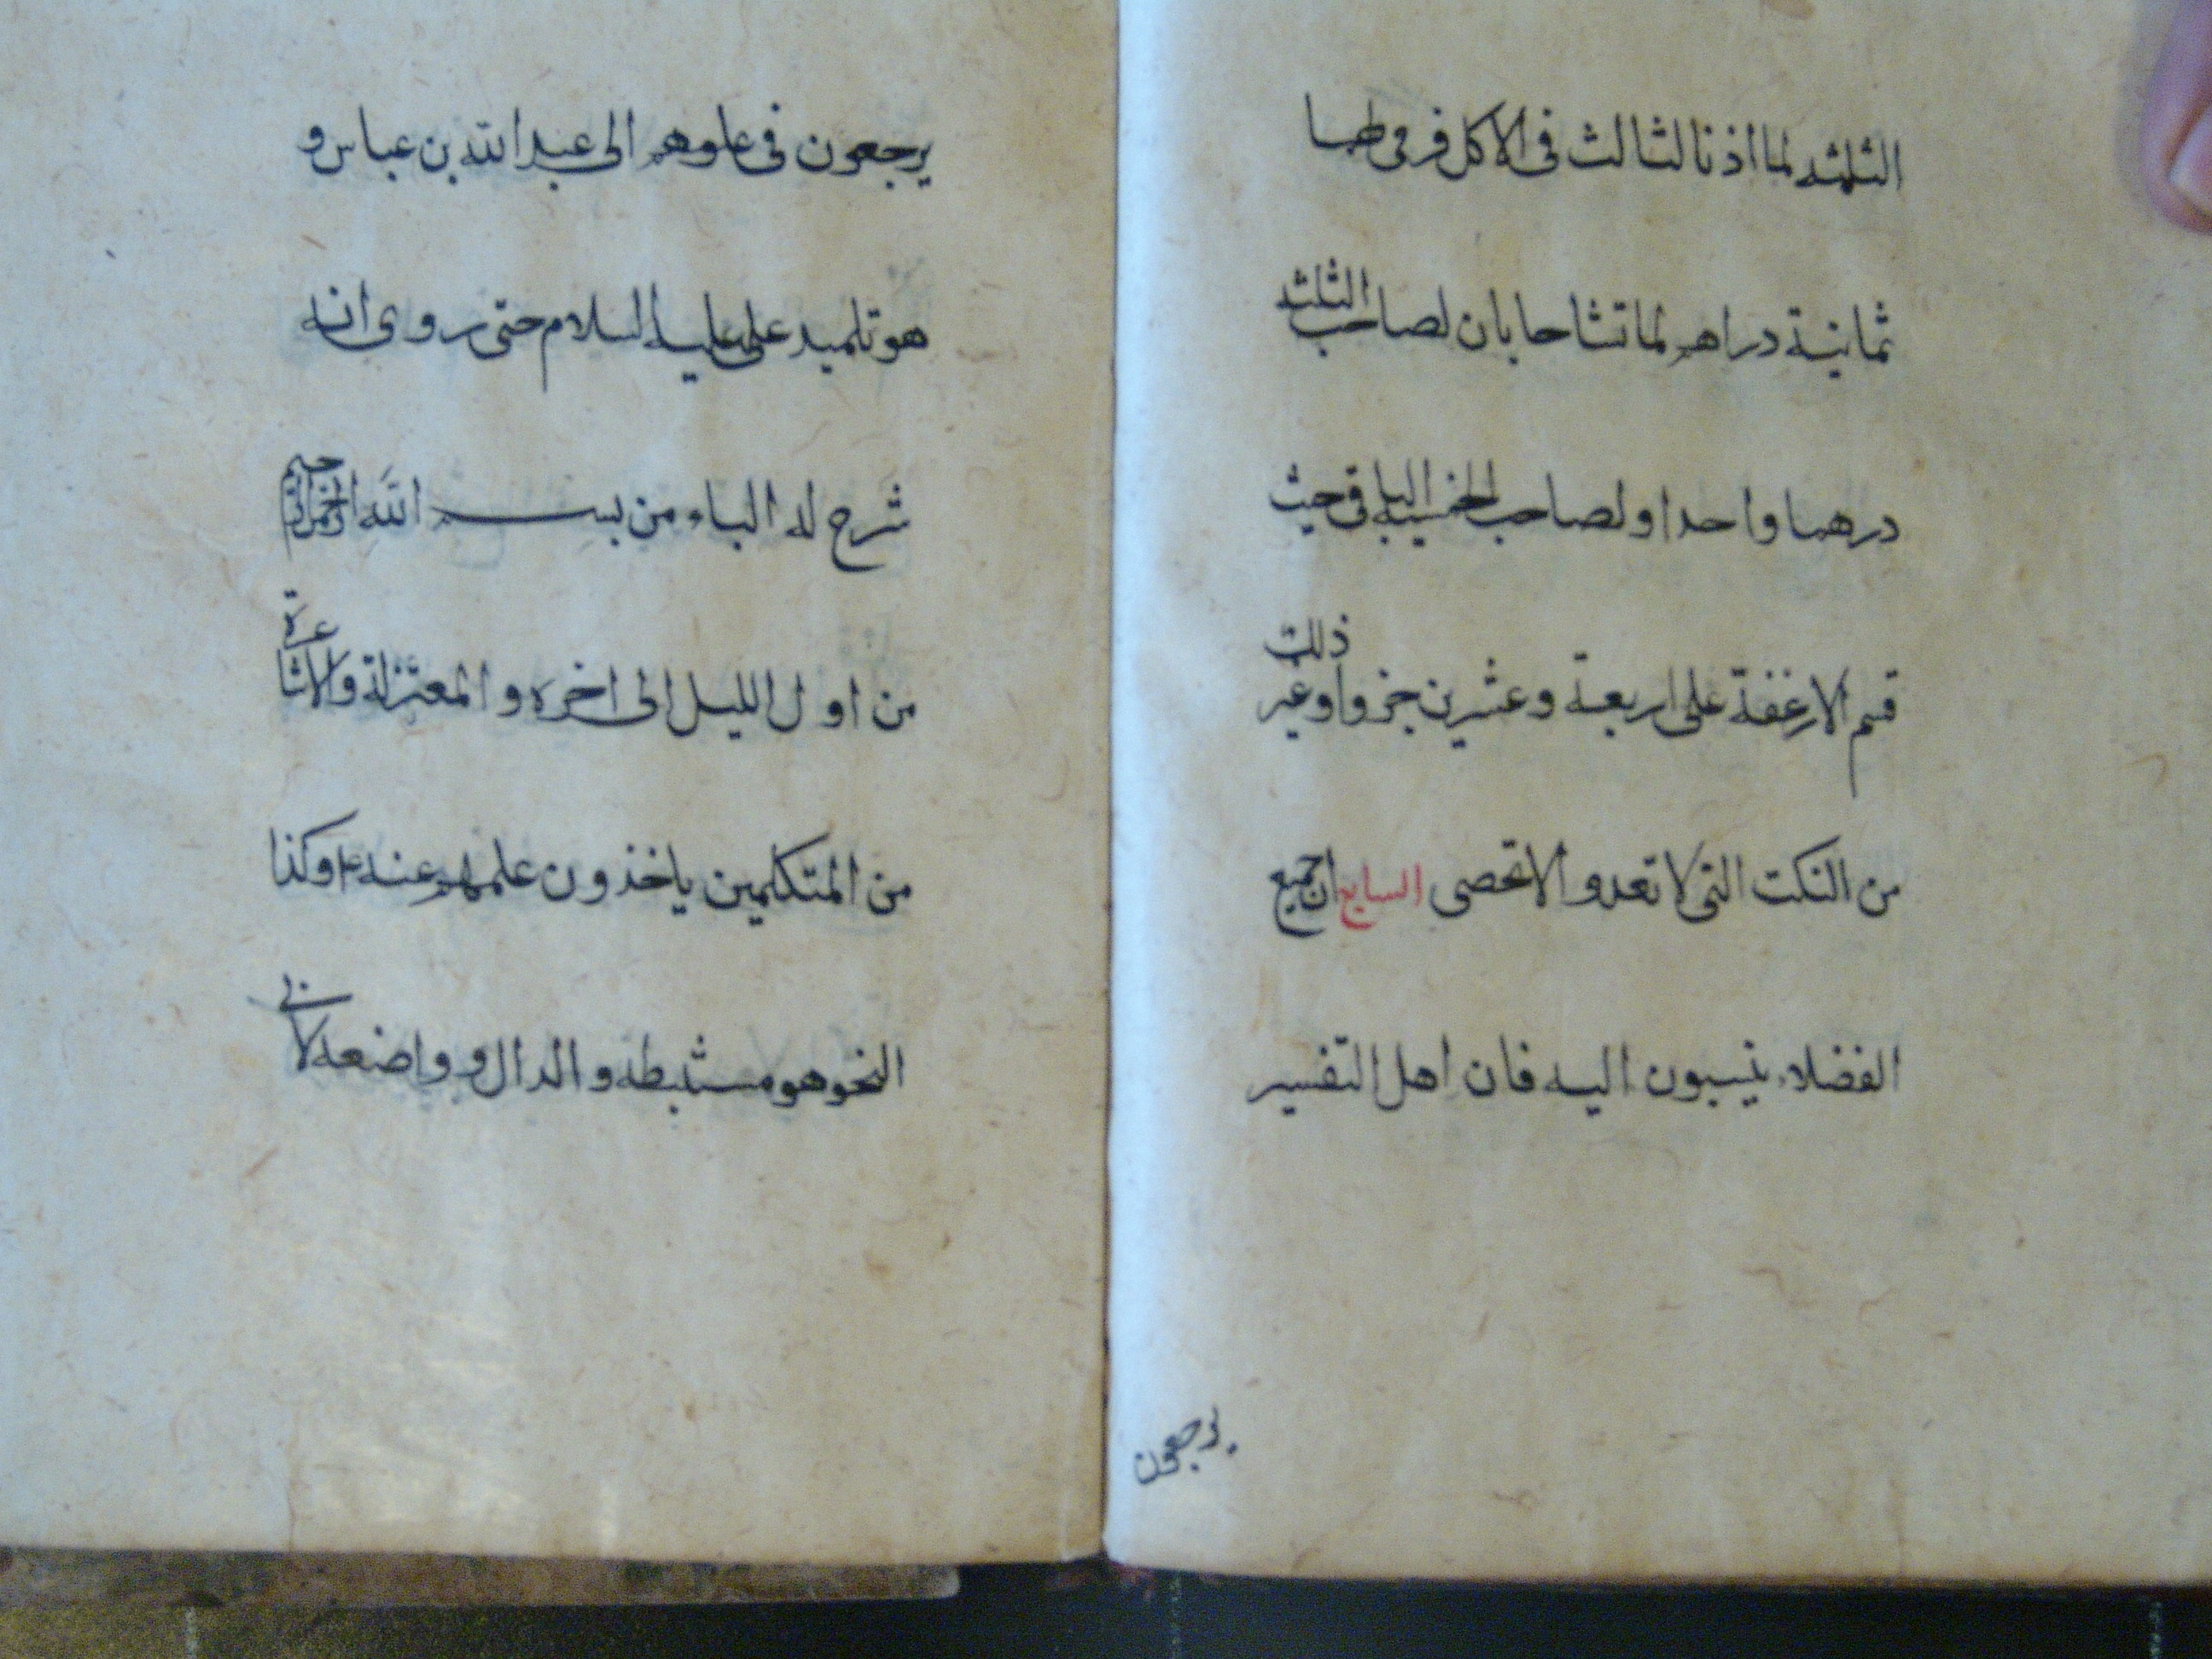 الثلثه لما اذنا لثالث فى الاكل فرمى لهما
ثمانية دراهم لما تشاحا بان لصاحب الثلثه
درهما واحدا ولصاحب الخمسة الباقى حيث
قسم الارغفة على اربعة وعشرين جزوا وغير ذلك
من النكت التى لا تعد ولا تحصى السابع ان جميع
الفضلاء ينسبون اليه فان اهل التفسير
يرجعون
يرجعون فى علومهم الى عبد الله بن عباس و
هو تلميذ على عليه السلام حتى روى انه
شرح له الباء من بسم الله الرحمن الرحيم
من اول الليل الى اخره والمعتزلة والاشاعرة
من المتكلمين ياخذون علمهم عنه وكذا
النحو هو مستنبطه والدال وواضعه لابى